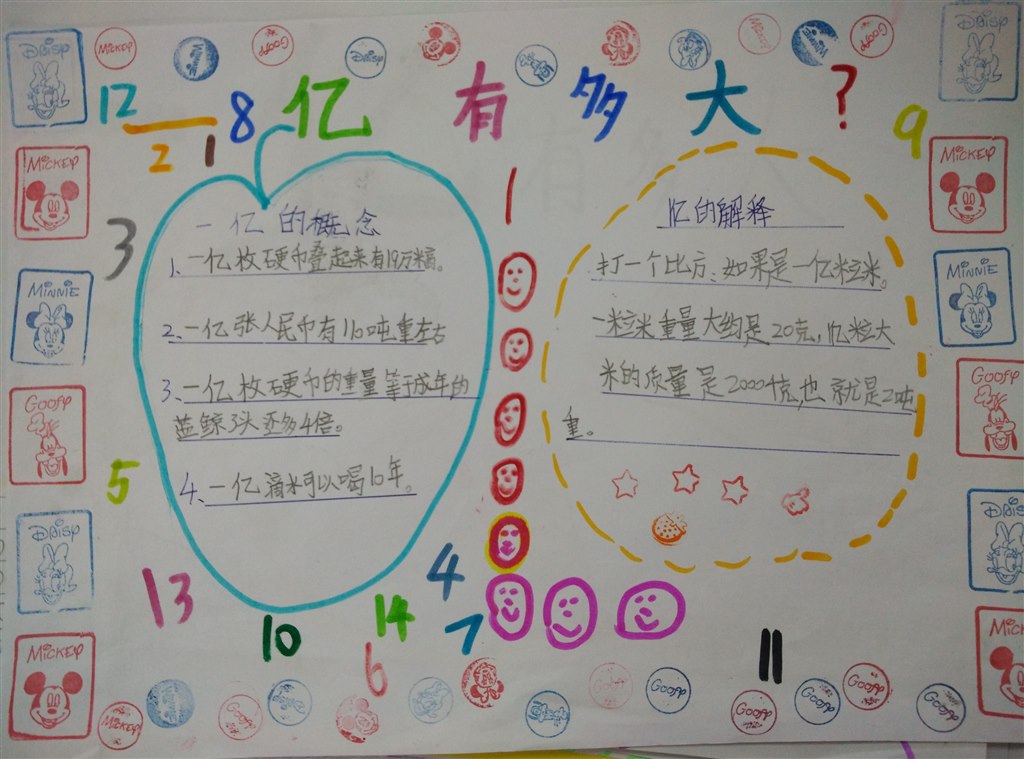 亿有多大?
12
8
2
1
9
3
5
13
10
14
6
4
7
11
1
一亿的概念
1、一亿枚硬币叠起来有19万米高。
2、一亿张人民币有110吨重左右
3、一亿枚硬币的重量等于成年的
蓝鲸3头还多4倍。
4、一亿滴水可以喝10年。
亿的解释
打一个比方、如果是一亿粒米。
一粒米重量大约是20克,亿粒大
米的质量是2000千克,也就是2吨
重。
DAISY
MICKEY
MINNIE
GOOFY
DAISY
MICKEY
DAISY
MICKEY
MINNIE
GOOFY
DAISY
MICKEY
MICKEY
MINNIE
GOOFY
DAISY
MICKEY
MINNIE
GOOFY
MICKEY
GOOFY
GOOFY
GOOFY
GOOFY
GOOFY
GOOFY